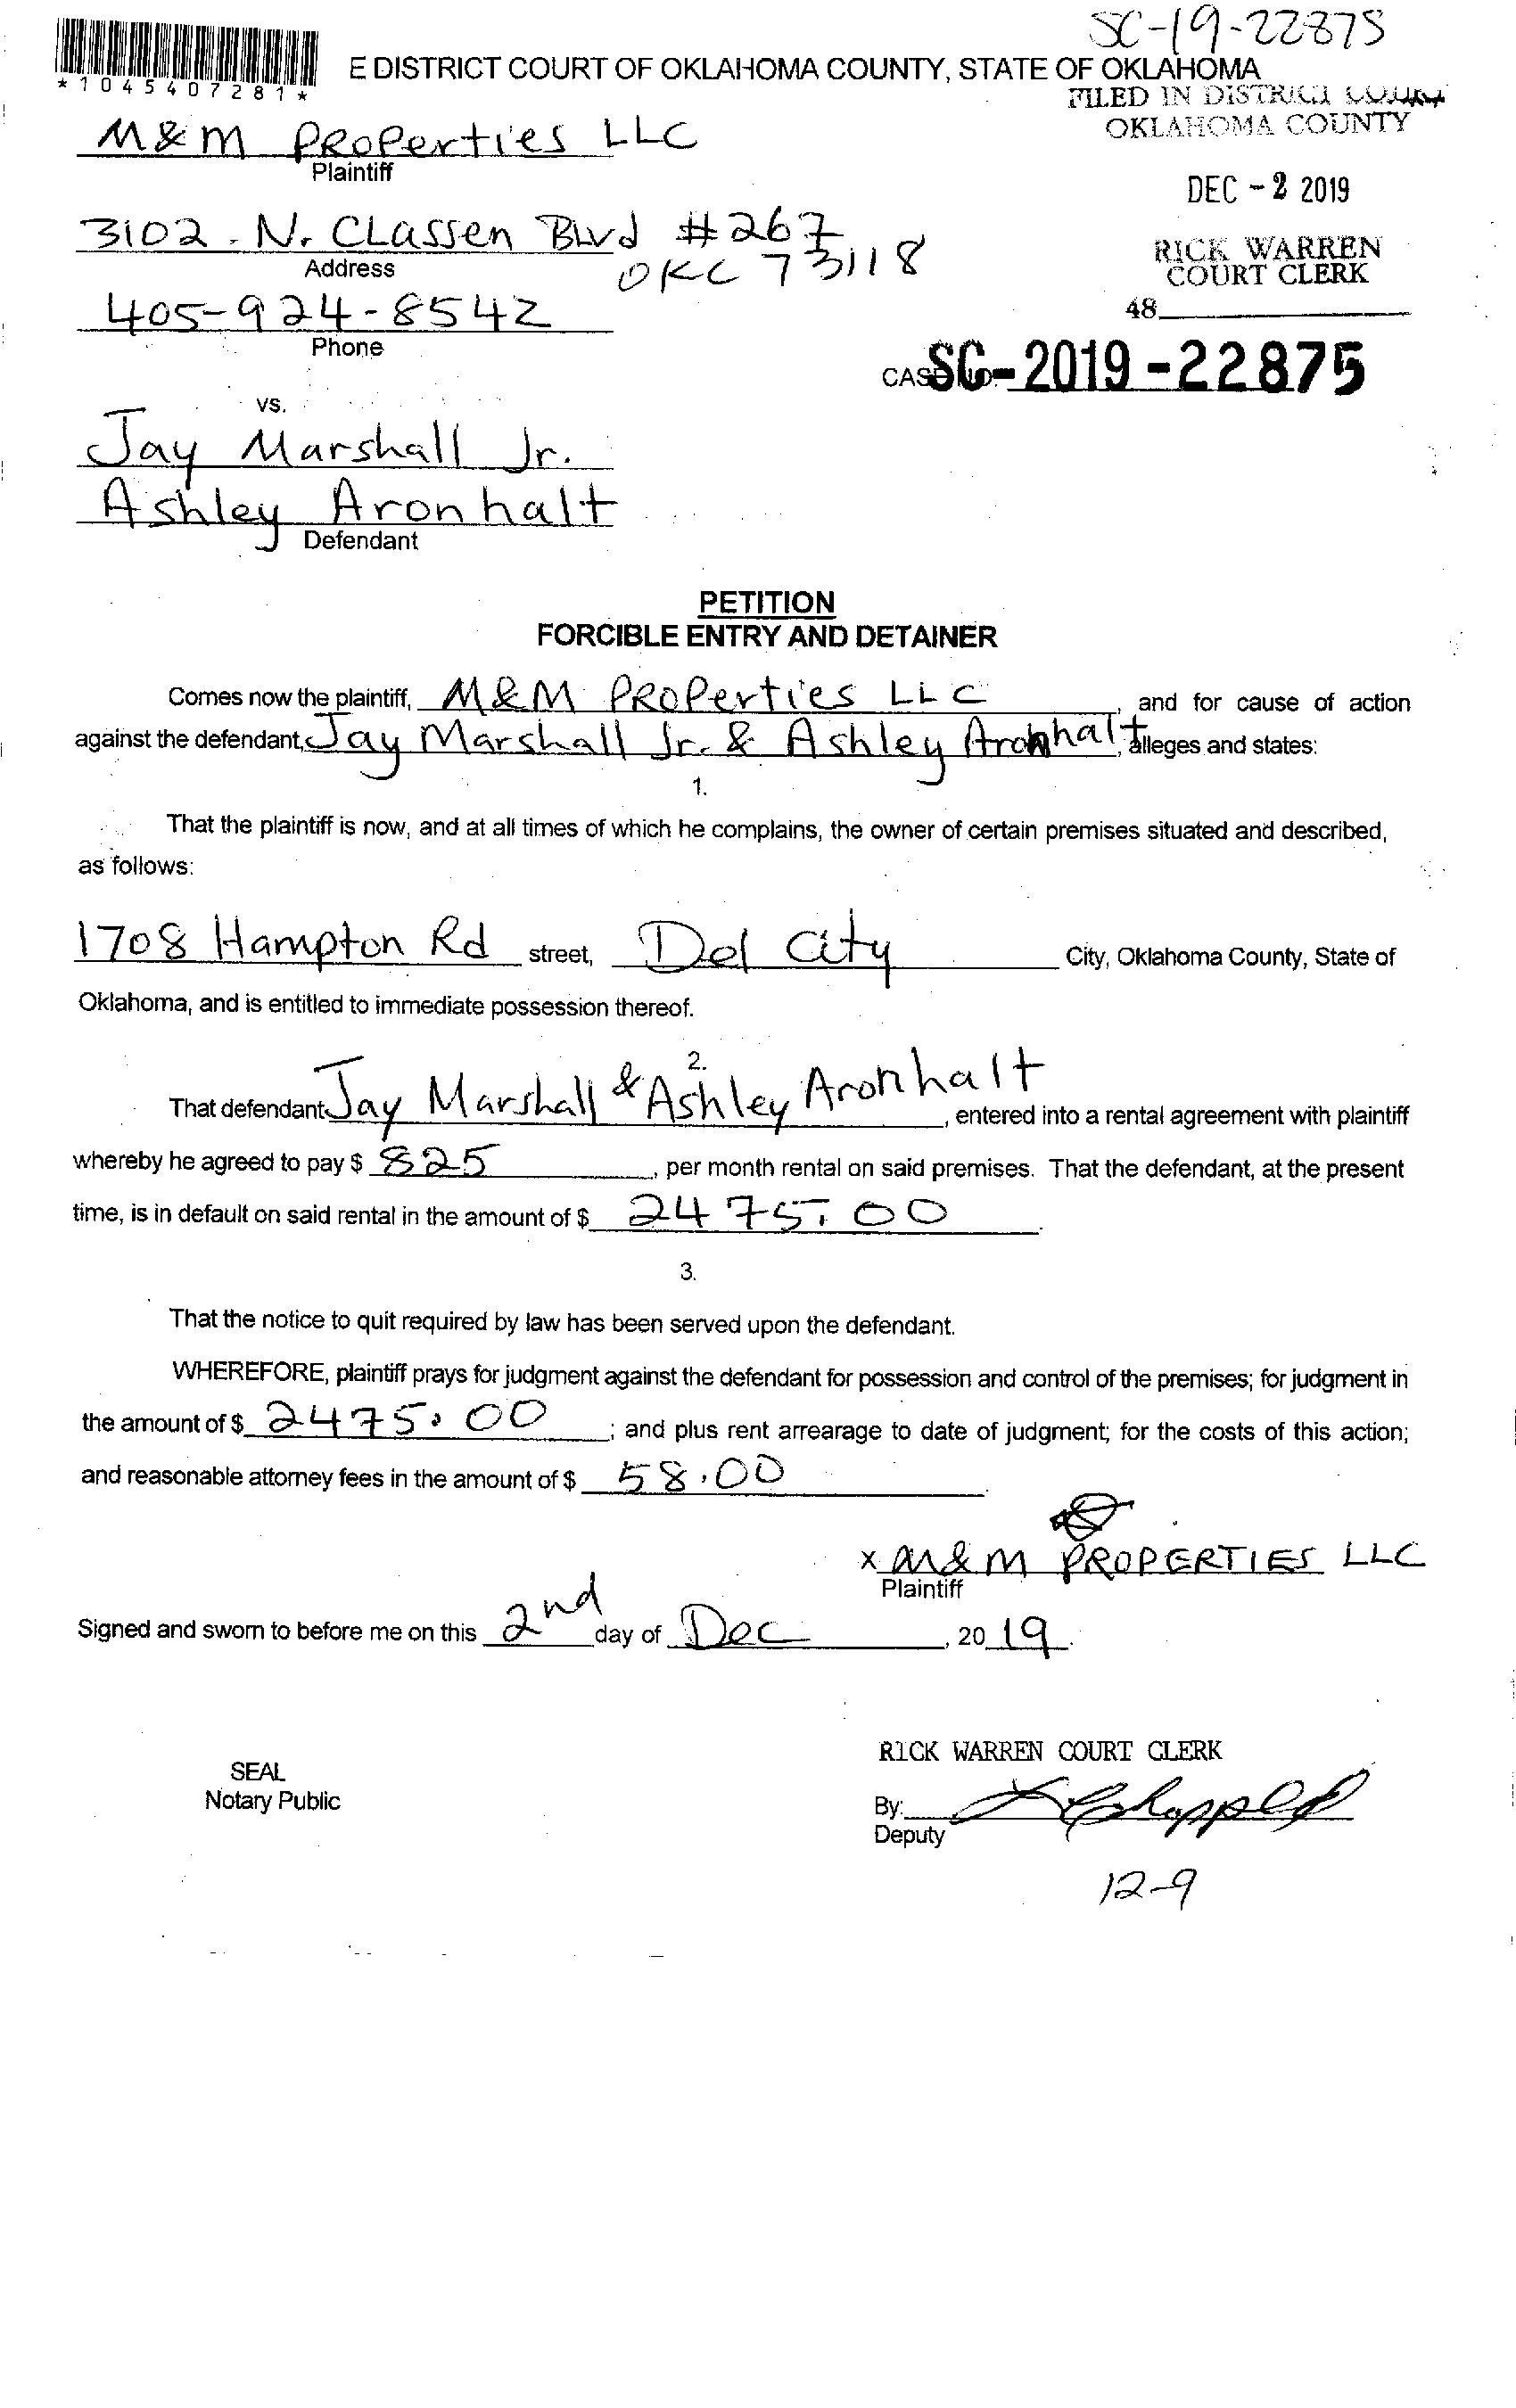 SC-19-22875
*1045407281*
E DISTRICT COURT OF OKLAHOMA COUNTY, STATE OF OKLAHOMA
FILED IN DISTRICT COURT
OKLAHOMA COUNTY
M&M PROPerties LLC
Plaintiff
DEC - 2 2019
3102 . N. CLassen BLvd #267
Address
OKC 73118
RICK WARREN
COURT CLERK
405-924-8542
Phone
48
CASE NO. SC-2019-22875
vs.
Jay Marshall Jr.
Ashley Aronhalt
Defendant
PETITION
FORCIBLE ENTRY AND DETAINER
Comes now the plaintiff, M&M PROPerties LLC, and for cause of action
against the defendant, Jay Marshall Jr. & Ashley Aronhalt, alleges and states:
1.
That the plaintiff is now, and at all times of which he complains, the owner of certain premises situated and described,
as follows:
1708 Hampton Rd street, Del City City, Oklahoma County, State of
Oklahoma, and is entitled to immediate possession thereof.
2.
That defendant, Jay Marshall & Ashley Aronhalt, entered into a rental agreement with plaintiff
whereby he agreed to pay $ 825, per month rental on said premises. That the defendant, at the present
time, is in default on said rental in the amount of $ 2475.00.
3.
That the notice to quit required by law has been served upon the defendant.
WHEREFORE, plaintiff prays for judgment against the defendant for possession and control of the premises; for judgment in
the amount of $ 2475.00; and plus rent arrearage to date of judgment; for the costs of this action;
and reasonable attorney fees in the amount of $ 58.00.
x M&M PROPERTIES LLC
Plaintiff
Signed and sworn to before me on this 2nd day of Dec, 2019.
RICK WARREN COURT CLERK
SEAL
Notary Public
By:
Deputy
12-9